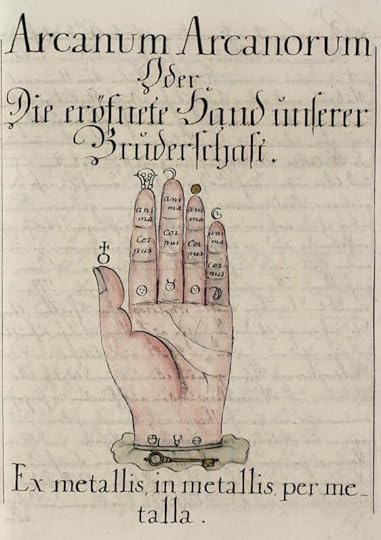 Arcanum Arcanorum
Oder
Die eröfnete Hand unserer
Bruderschaft.
ani
ma
Cor
pus
ani
ma
Cor
pus
ani
ma
Cor
pus
ani
ma
cor
pus
Ex metallis, in metallis, per me-
talla.